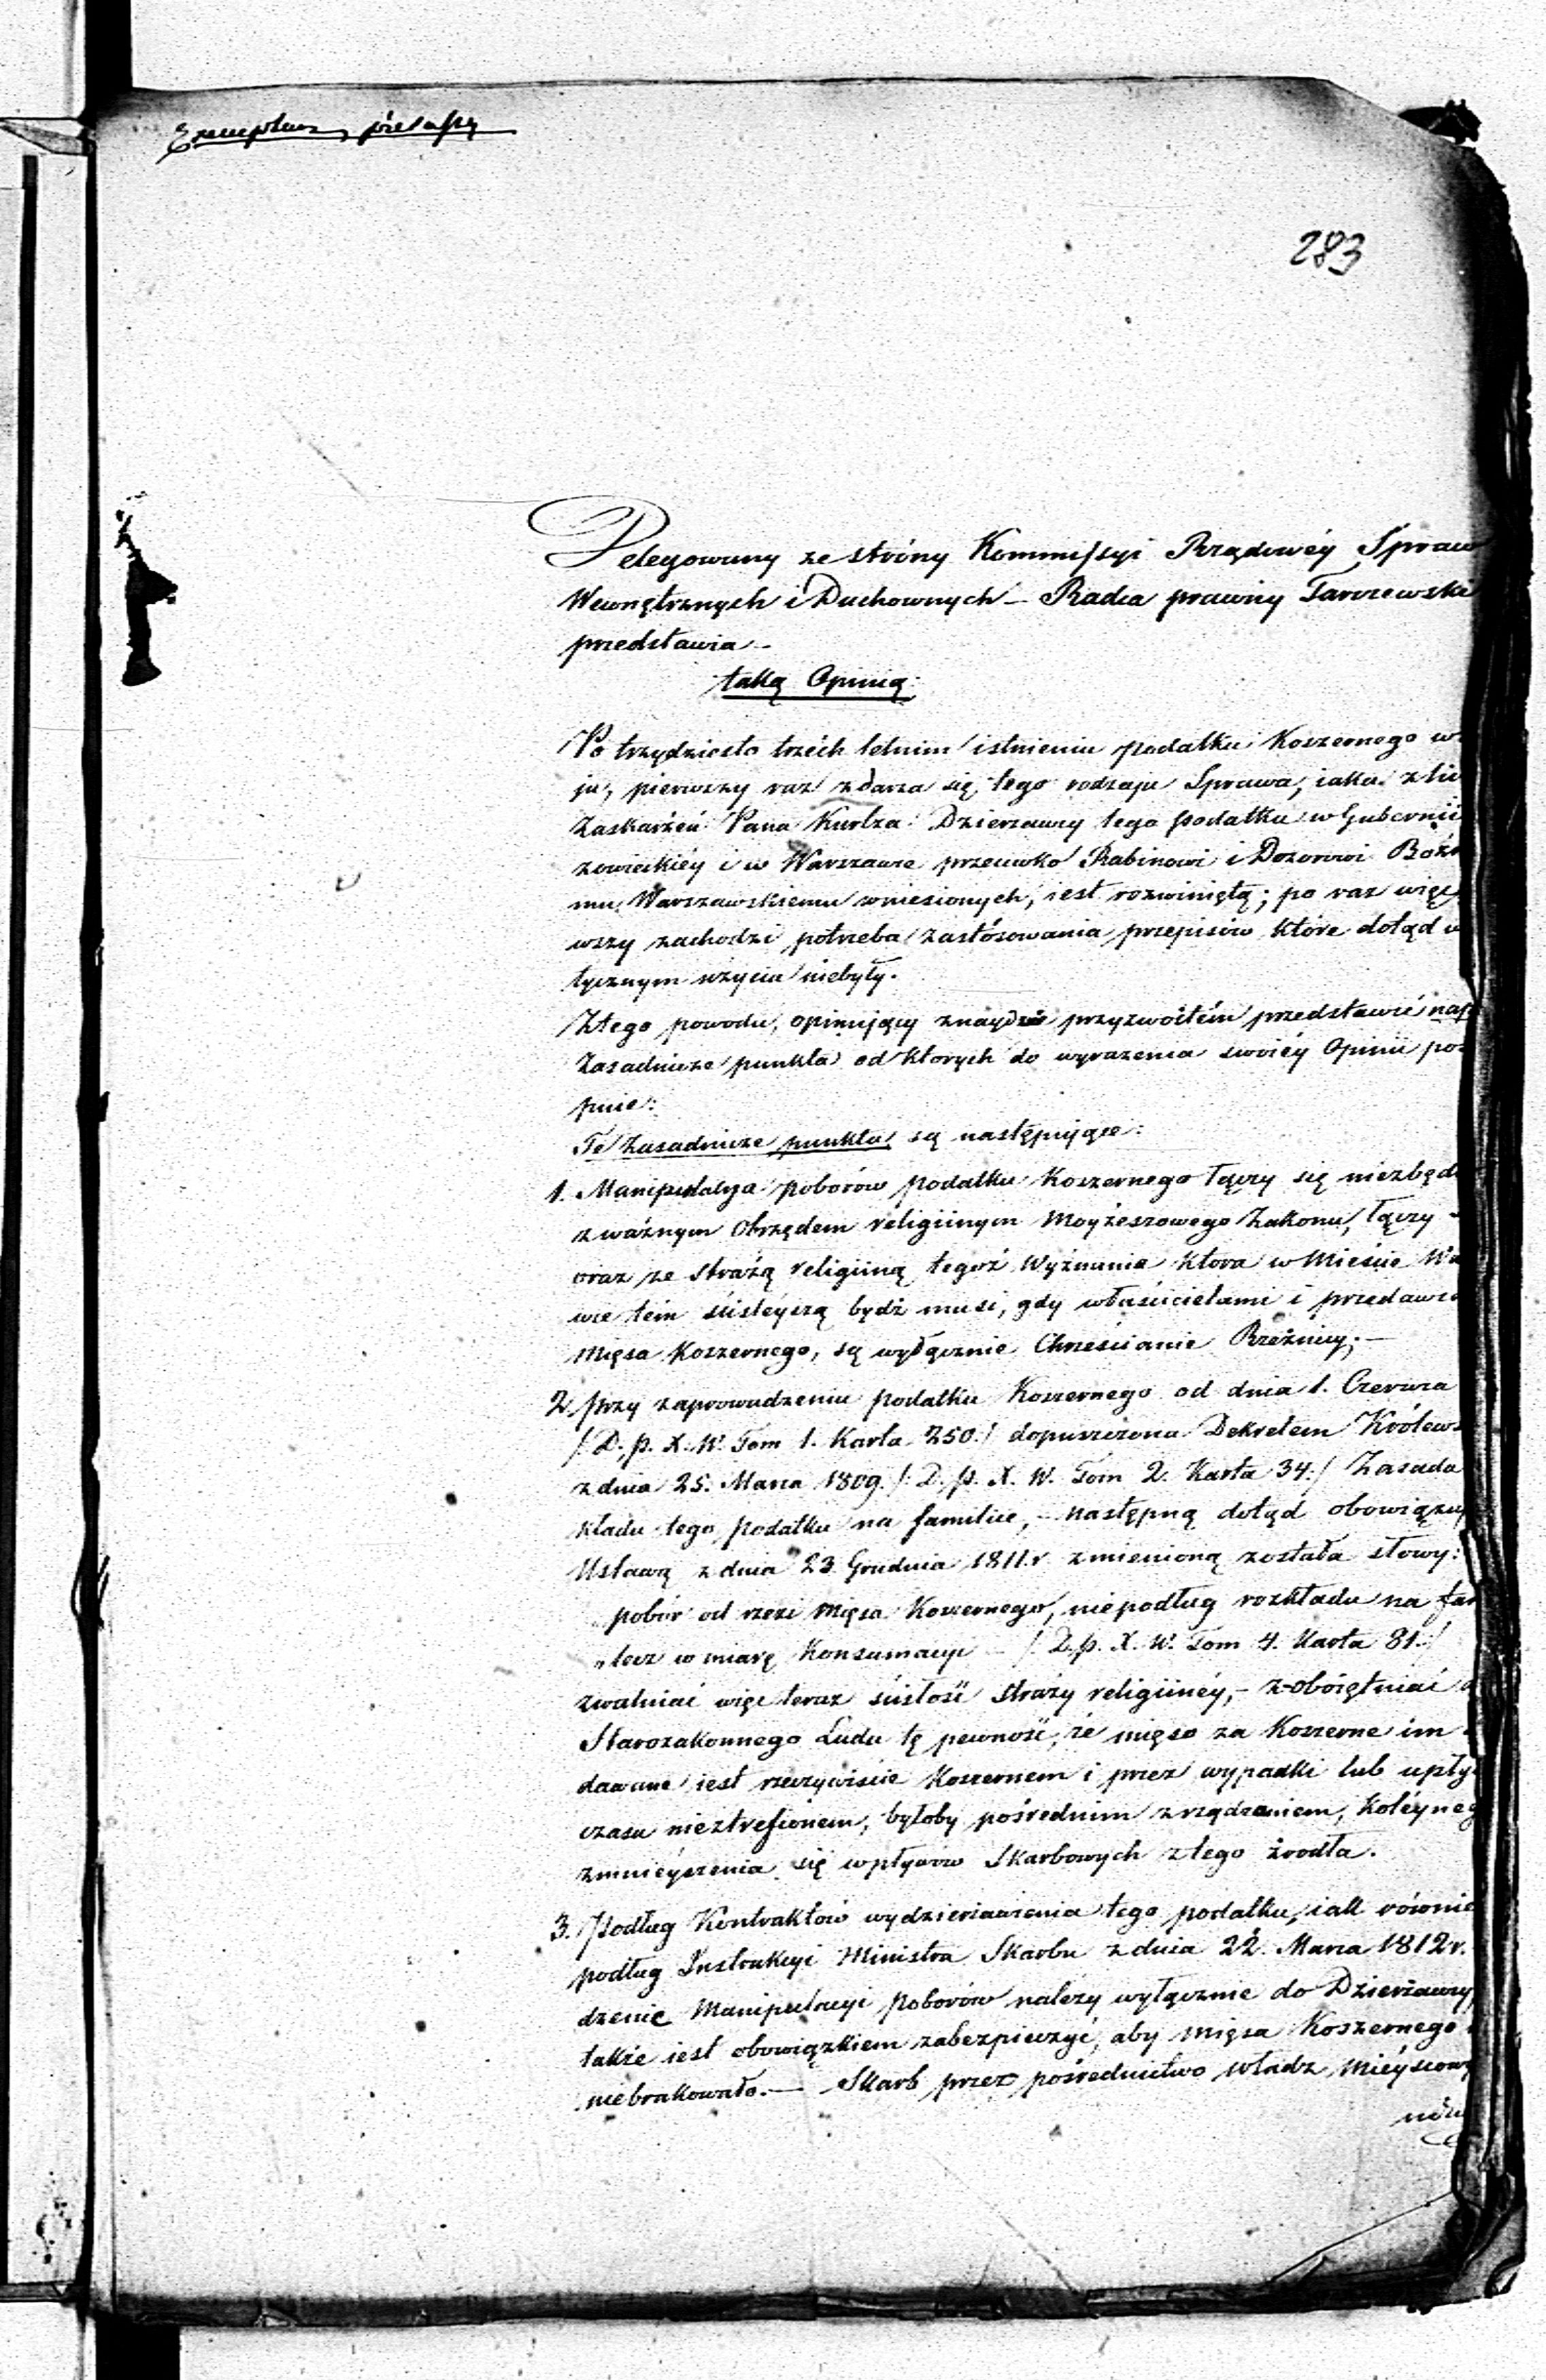 283
Delegowany ze strony Kommissyi Rządowéy Spraw
Wewnętrznych i Duchownych – Radca prawny Tarczewski
przedstawia –
taką Opinią:
Po trzydziesto trzech letnim istnieniu podatku Koszernego w
ju, pierwszy raz zdarza się tego rodzaju Sprawa, iaka z
Zaskarżeń Pana Kurtza Dzierzawcy tego podatku w Gubernii
zowieckiéy i w Warszawie przeciwko Rabinowi i Dozorowi Boż
mu Warszawskiemu wniesionych, iest rozwiniętą; po raz więc
wszy zachodzi potrzeba zastósowania przepisów które dotąd w
tycznym użyciu niebyły.
Z tego powodu, opiniujący znayduie przyzwoitém przedstawić nap
Zasadnicze punkta od których do wyrażenia swoiéy Opinii po
pnie:
Te Zasadnicze punkta są następujące:
1. Manipulacya poborów podatku Koszernego łączy się niezbęd
z ważnym Obrzędem religiinym Moyżeszowego Zakonu, łączy
oraz ze strażą religiiną tegoż Wyznania która w Mieście Wa
wie tém ściśleyszą bydź musi, gdy właścicielami i przedawc
Mięsa Koszernego, są wyłącznie Chrześcianie Rzeźnicy; –
2. przy zaprowadzeniu podatku Koszernego od dnia 1. Czerwca
/: D. p. X. W. Tom 1. Karta 250:/ dopuszczona Dekretem Królews
z dnia 25. Marca 1809 /: D. p. X. W. Tom 2. Karta 34:/ Zasada
kładu tego podatku na familie, – następną dotąd obowiązuj
Ustawą z dnia 23 Grudnia 1811.r zmienioną została słowy:
„pobór od rzezi Mięsa Koszernego, niepodług rozkładu na fam
„lecz w miarę Konsumacyi – /: D. p. X. W. Tom 4. Karta 81:/
zwalniać więc teraz ścisłość Straży religiinéy, – zobojętniać
Starozakonnego Ludu tę pewność, że mięso za Koszerne im
dawane iest rzeczywiście Koszernem i przez wypadki lub upły
czasu nieztrefionem, byłoby pośrednim zrządzeniem, Koléyneg
zmnieyszenia się wpływów Skarbowych z tego źrodła.
3. Podług Kontraktów wydzierżawienia tego podatku, iak równie
podług Instrukcyi Ministra Skarbu z dnia 22. Marca 1812 r.
dzenie Manipulacyi poborów należy wyłącznie do Dzierżawcy,
także iest obowiązkiem zabezpieczyć, aby Mięsa Koszernego
niebrakowało. – Skarb przez pośrednictwo Władz Mieyscowy